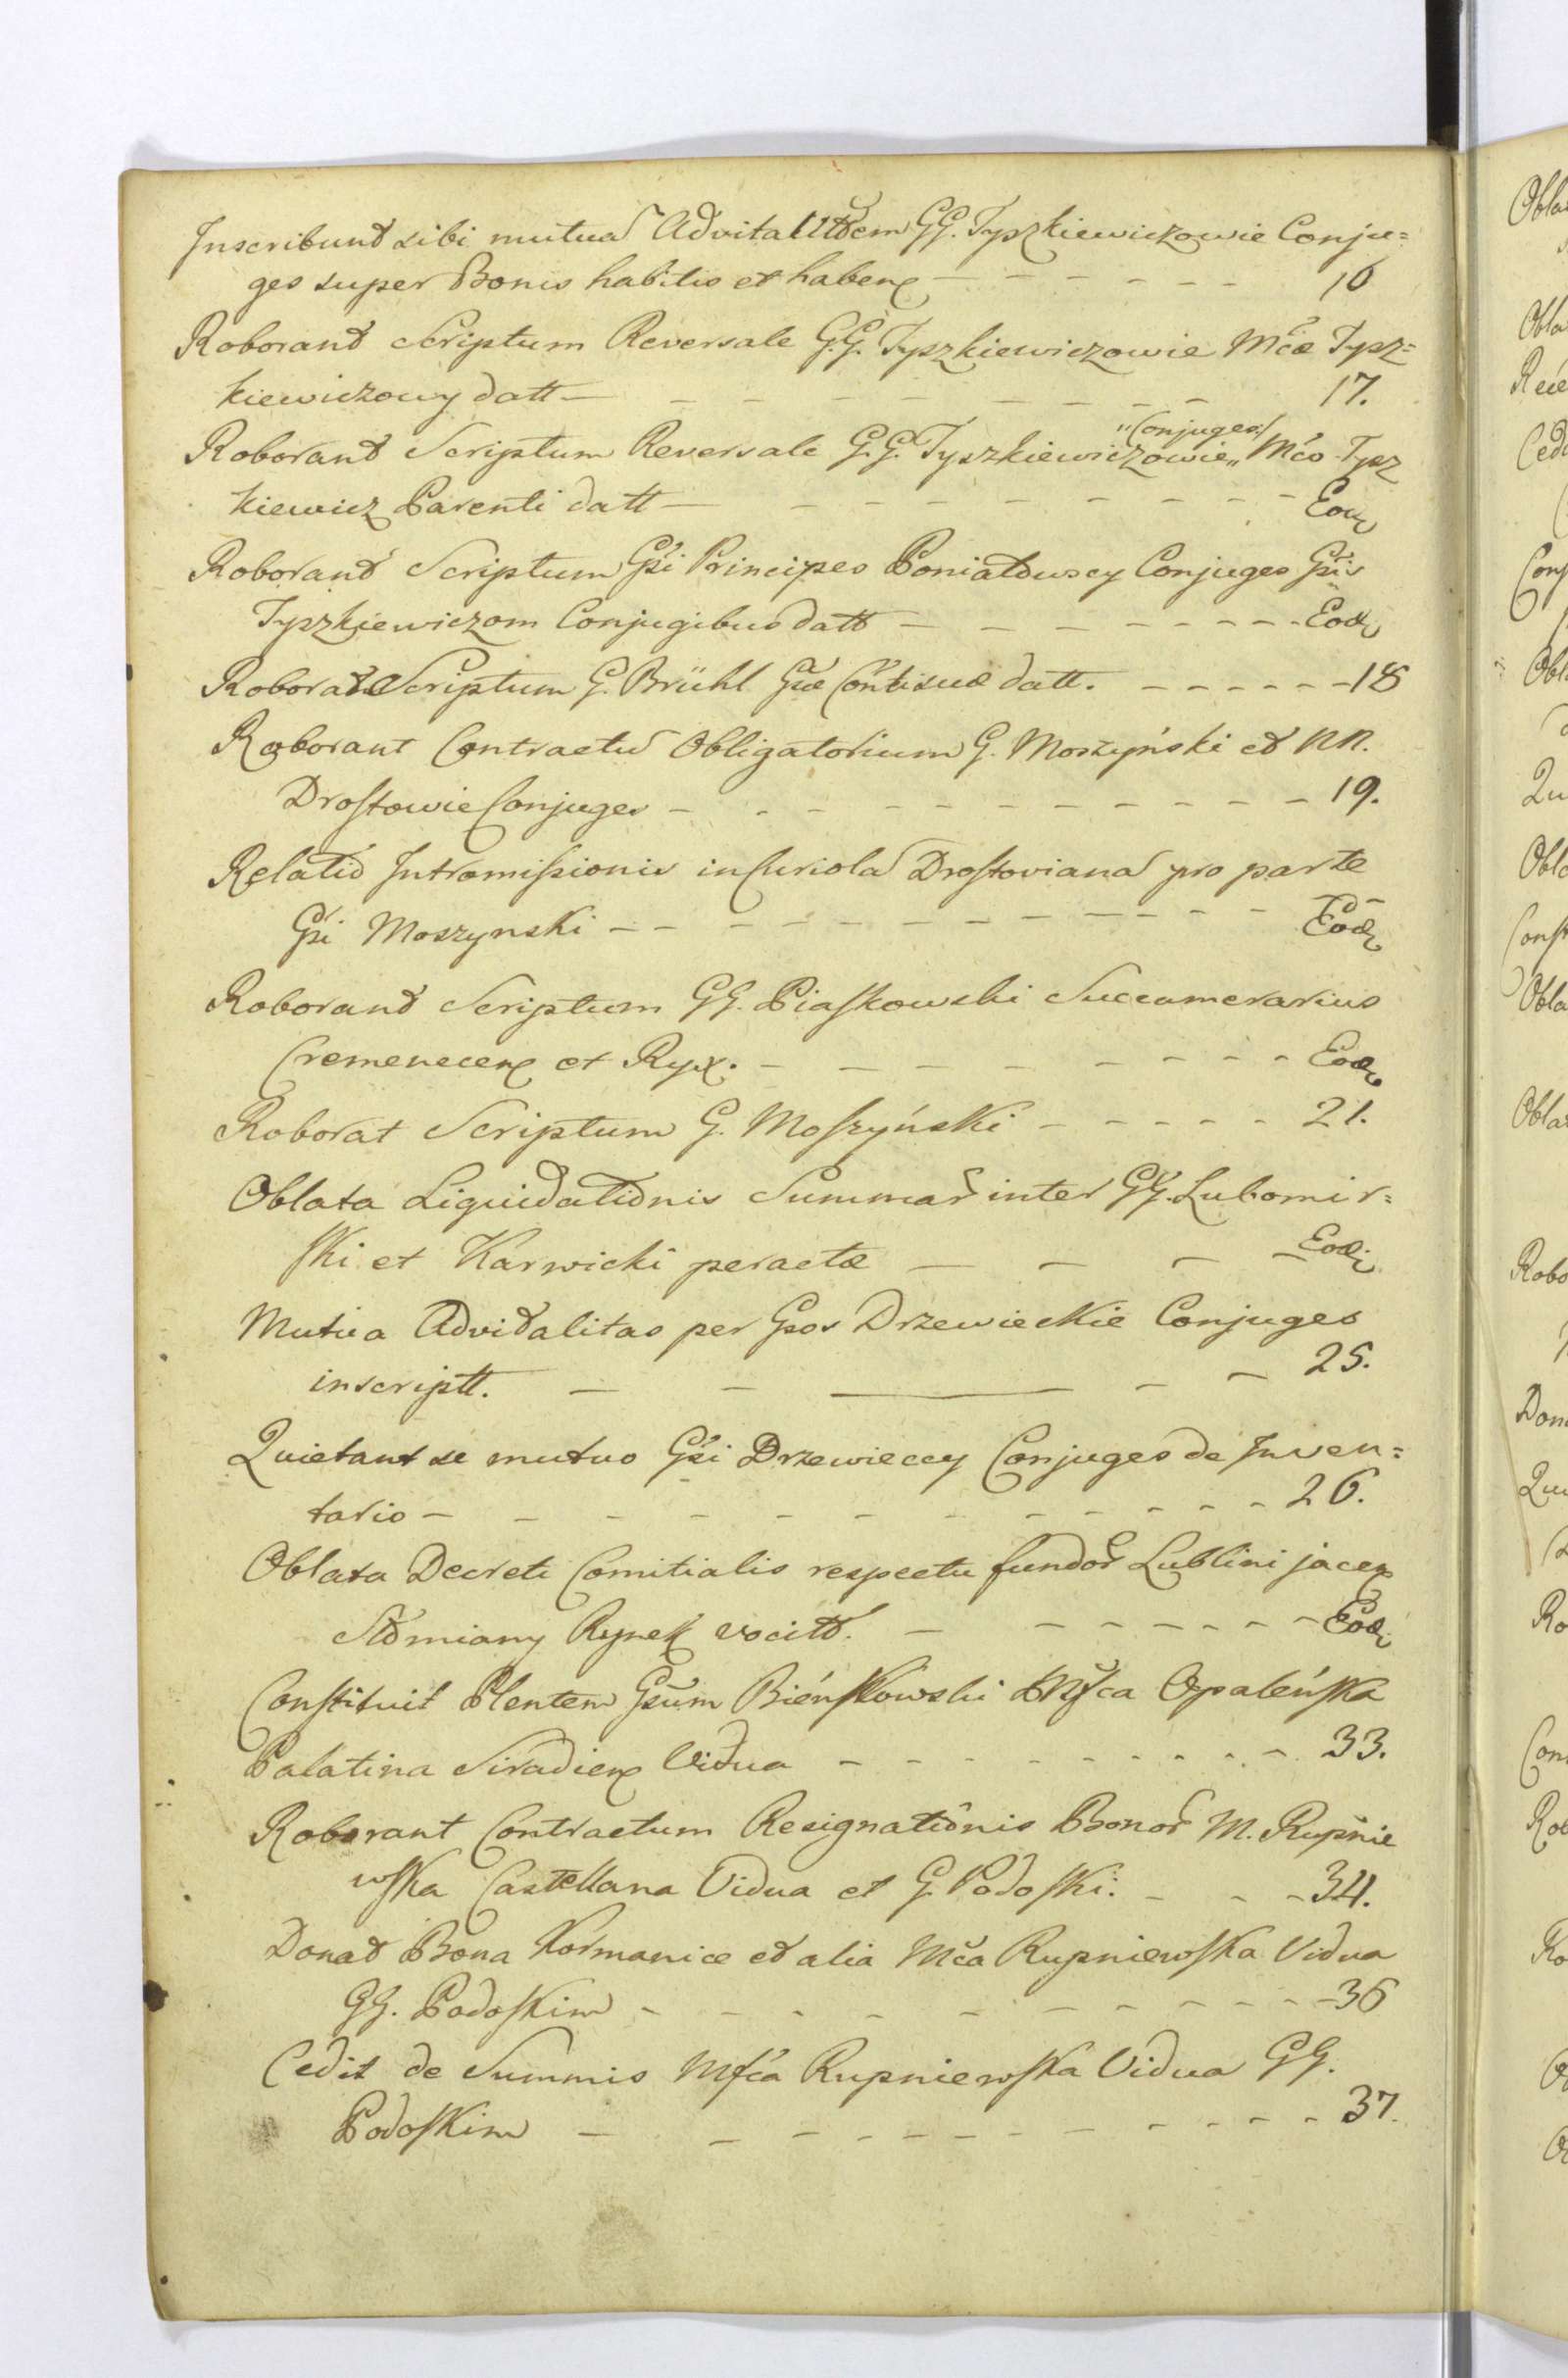 Inscribunt sibi mutuã Advitalitãtem GG. Tyszkiewiczowie Conju=
ges super Bonis habitis et haben̄ — 16
Roborant Scriptum Reversale G.G. Tyszkiewiczowie Mčæ Tysz=
kiewiczowy datt — 17.
Roborant Scriptum Reversale G.G. Tyszkiewiczowie „Conjuges" Mčo Tysz
kiewicz Parenti datt — Eod.
Roborant Scriptum Gsi Principes Poniatowscy Conjuges Gsis
Tyszkiewiczom Conjugibus datt — Eod.
Roborat Scriptum G. Brühl Gsæ Cõntisuæ datt. — 18
Roborant Contractũ Obligatorium G. Moszyński et NN.
Drostowie Conjuges — 19.
Relatio Intromissionis in Curiolã Drostovianã pro parte
Gsi Moszynski — Eod.
Roborant Scriptum GG. Piaskowski Succamerarius
Cremenecen̄ et Ryx. — Eod.
Roborat Scriptum G. Moszyński — 21.
Oblata Liquidationis Summar̃ inter GG. Lubomir=
ski et Karwicki peractæ — Eod.
Mutua Advitalitas per Gsos Drzewieckie Conjuges
inscriptt. — 25.
Quietant se mutuo Gsi Drzewieccy Conjuges de Inven=
tario — 26.
Oblata Decreti Comitialis respectu fundor̃ Lublini jacen̄
Słomiany Rynek vocitt. — Eod.
Constituit Plentem Gsum Bieńskowski Opaleńska
Palatina Siradien̄ Vidua — 33.
Roborant Contractum Resignationis Bonor̃ M. Rupnie
wska Castellana Vidua et G. Podoski. — 34.
Donat Bona Kormanice et alia Mča Rupniewska Vidua
GG. Podoskim — 36
Cedit de Summis Mfča Rupniewska Vidua GG.
Podoskim — 37.